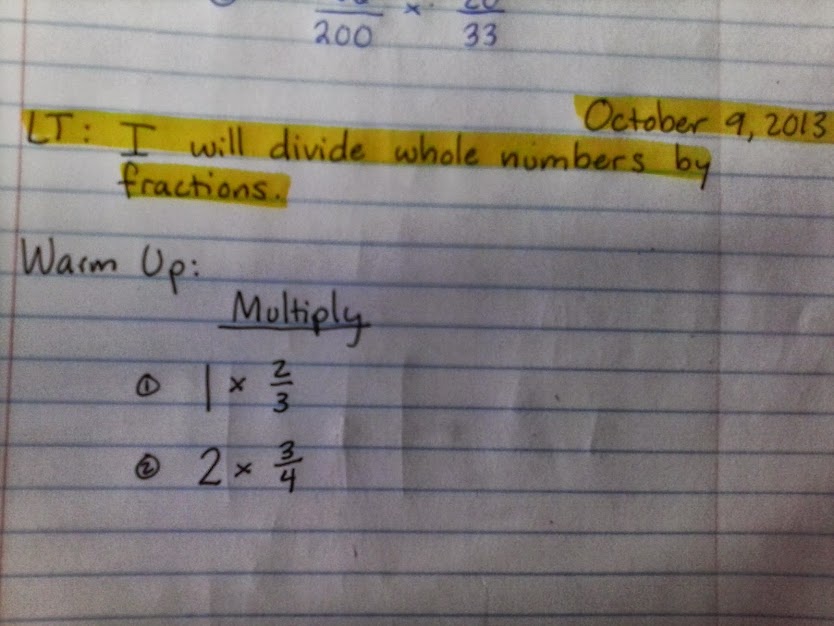 × 20
200 33
October 9, 2013
LT: I will divide whole numbers by
fractions.
Warm Up:
Multiply
① 1 × 2/3
② 2 × 3/4